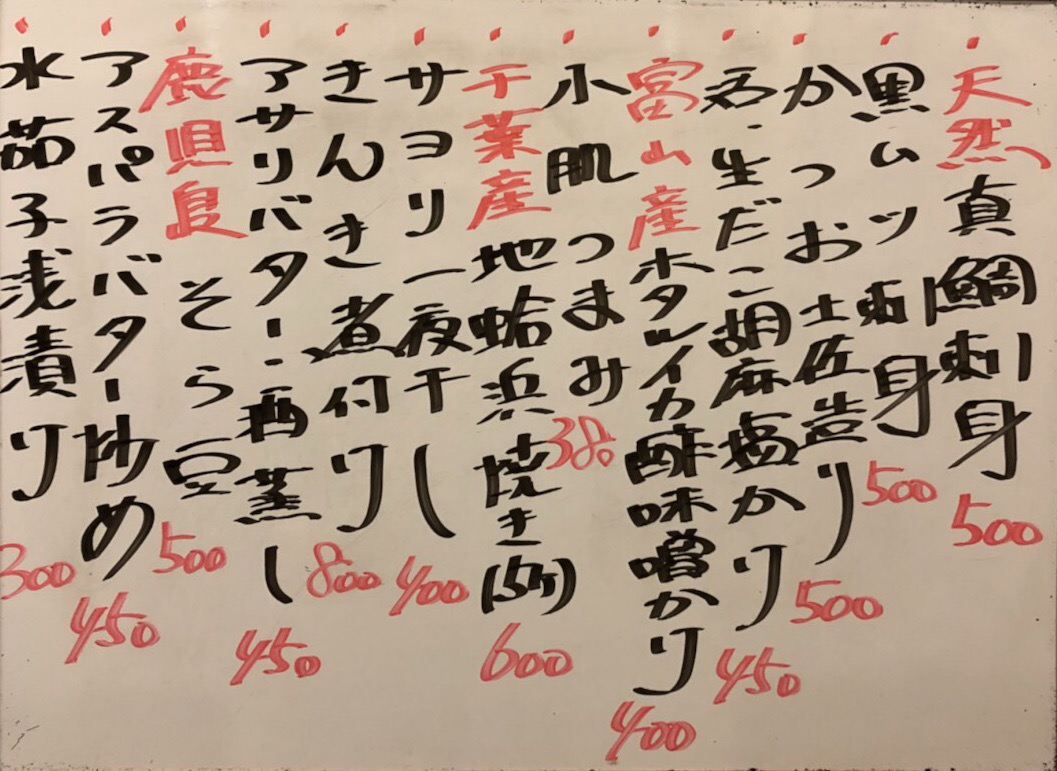 天然真鯛刺身 500
黒ムツ刺身 500
かつお土佐造り 500
生だこ胡麻塩かけ 450
富山産ホタルイカ酢味噌かけ 400
小肌つまみ 380
千葉産地蛤浜焼き(5ケ) 600
サヨリ一夜干し 400
きんき煮付け 800
アサリバター・酒蒸し 450
鹿児島そら豆 500
アスパラバター炒め 450
水茄子浅漬け 300